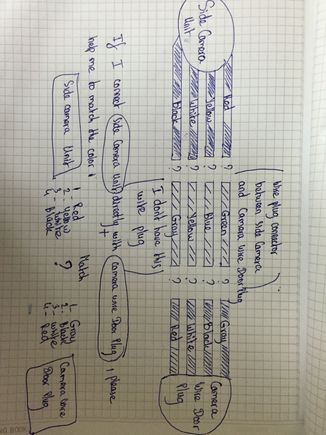 Wire plug connector
between side Camera
and Camera wire Door Plug
Side Camera
Unit
Red ? Green ? Gray
Yellow ? Blue ? Black
White ? Yellow ? White
Black ? Gray ? Red
Camera
wire Door
Plug
I don't have this
wire plug
If I connect Side Camera Unit directly with + Camera wire Door Plug, please
help me to match the color!
Side Camera Unit
1- Red
2- Yellow
3- White
4- Black
Match
?
1- Gray
2- Black
3- White
4- Red
Camera wire
Door Plug